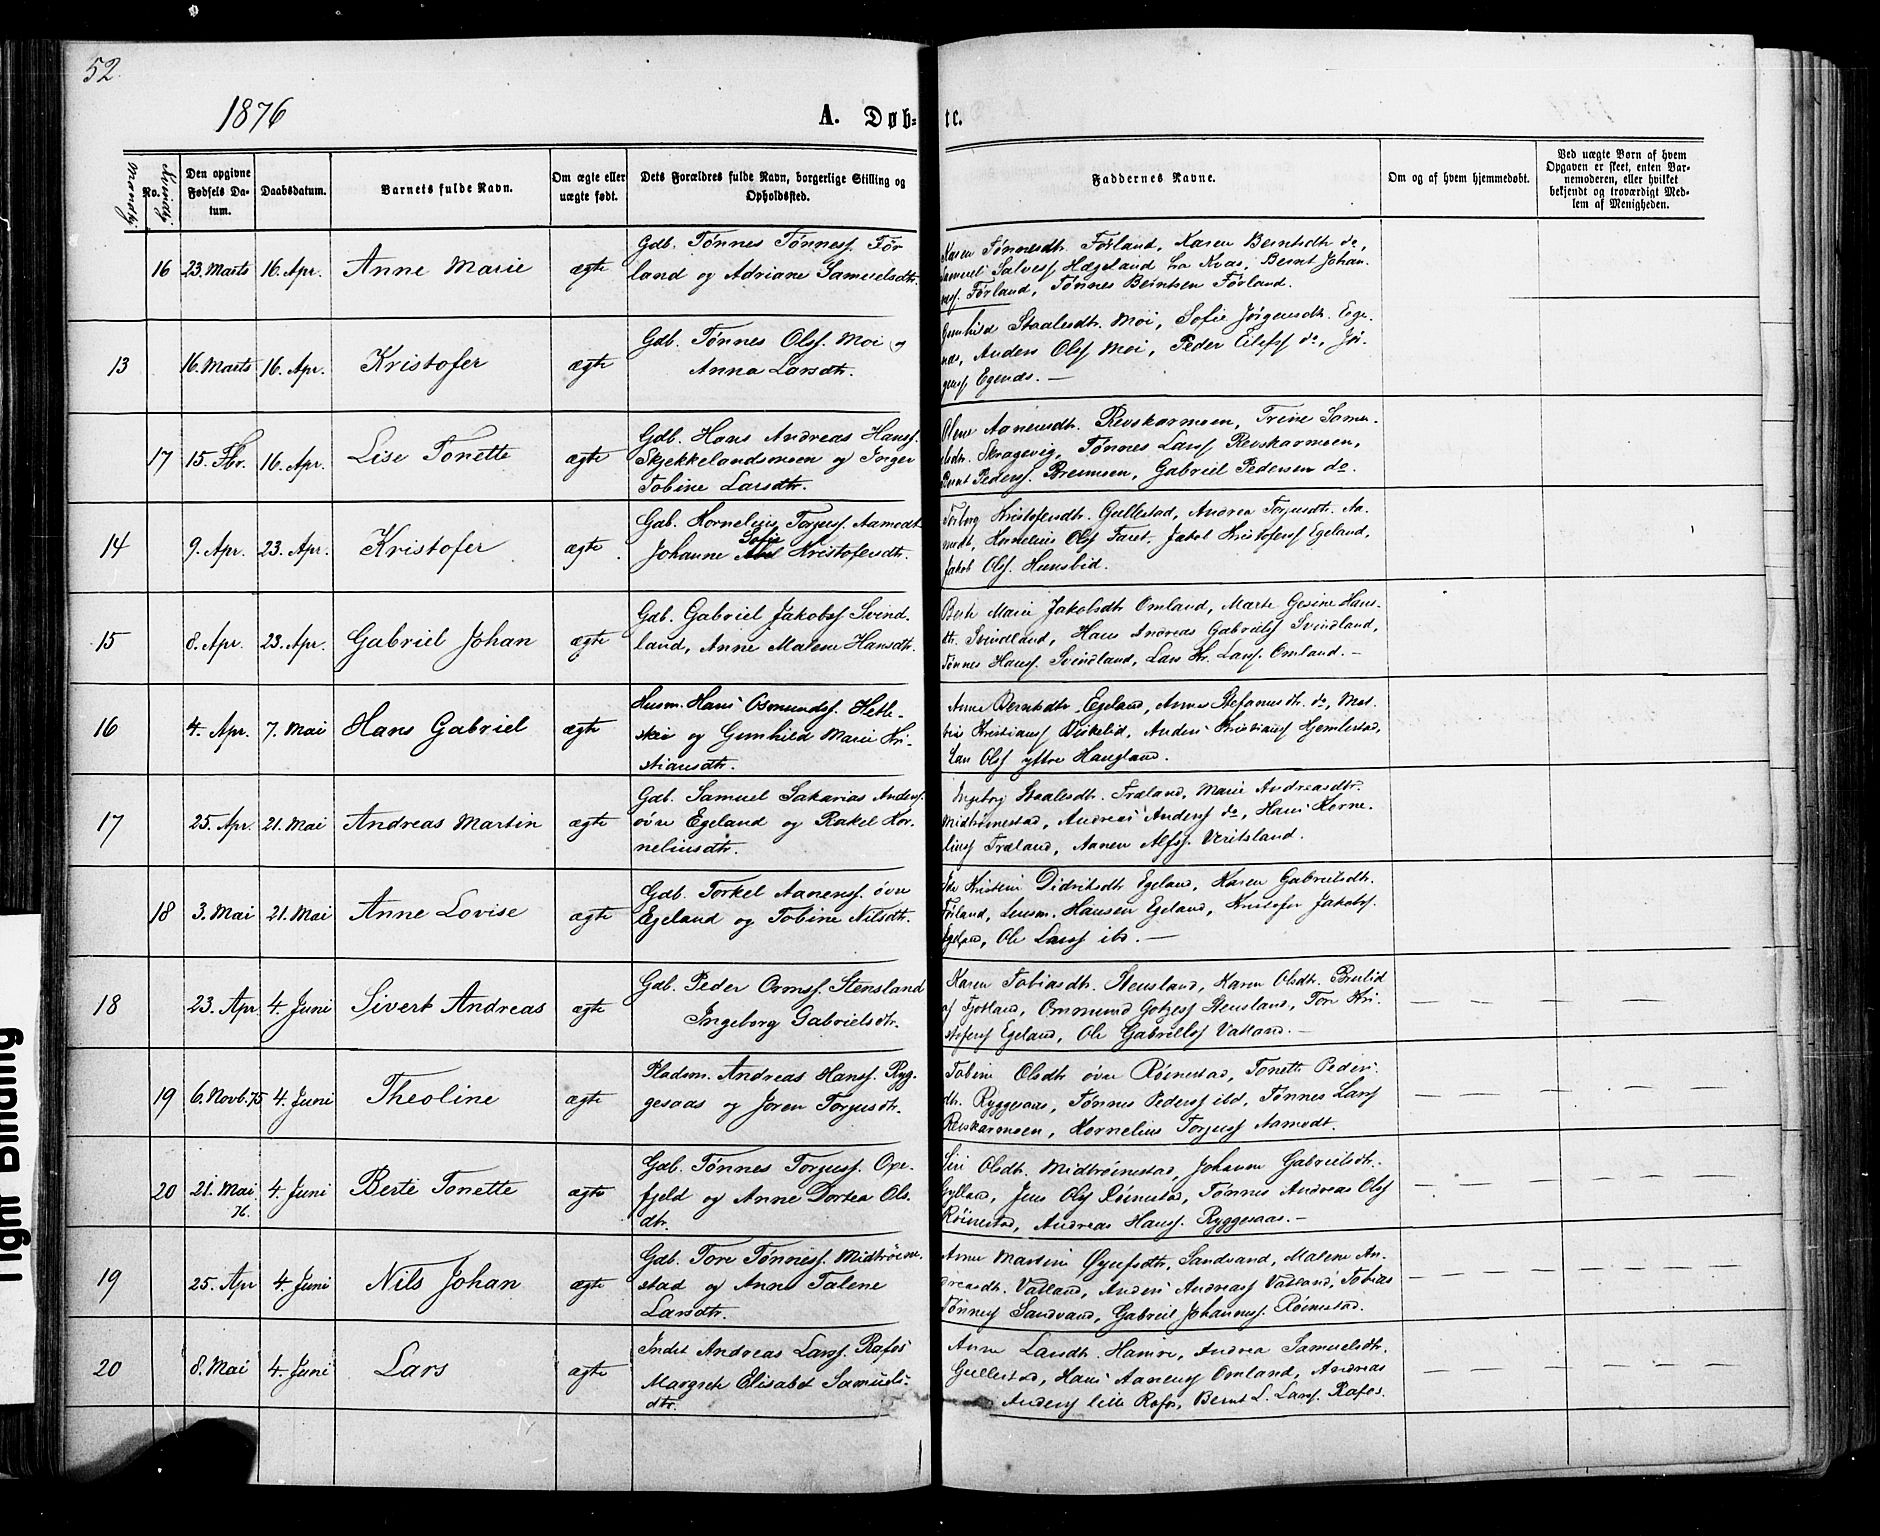 52.
1876
A. Døb-
te.
Mandkj.
No.
Kvindkj.
Den opgivne Fødsels Da-tum.
Daabsdatum.
Barnets fulde Navn.
Om ægte eller uægte født.
Dets Forældres fulde Navn, borgerlige Stilling og Opholdssted.
Faddernes Navne.
Om og af hvem hjemmedøbt.
Ved uægte Børn af hvem Opgaven er skeet, enten Bar-nemoderen, eller hvilket bekjendt og troværdigt Med-lem af Menigheden.
16 23. Marts 16. Apr. Anne Marie ægte
Gdb. Tønnes Tønness. Før
land og Adriane Samuelsdtr.
Karen Tønnesdtr. Førland, Karen Berntsdtr do,
Samuel Salvess Hægeland fra Kvas, Bernt Johan
ness. Førland, Tønnes Berntsen Førland.
13 16. Marts 16. Apr. Kristofer ægte
Gdb. Tønnes Olss. Moi og
Anna Larsdtr.
Gunhild Staalesdtr. Moi, Sofie Jørgensdtr. Ege-
næs, Anders Olss Moi, Peder Eilefss do, Jør-
genss Egenæs. —
17 15. Fbr. 16. Apr. Lise Tonette ægte
Gdb. Hans Andreas Hanss.
Skjekkelandsmoen og Inger
Tobine Larsdtr.
Olene Aanensdtr. Revskarmoen, Trine Samu-
elsdtr. Skragevig, Tønnes Larss Revskarmoen,
Bernt Pederss. Brenmoen, Gabriel Pedersen do.
14 9. Apr. 23. Apr. Kristofer ægte
Gdb. Kornelius Torjuss. Aamodt
Sofie
Johanne Kristofersdtr.
Torborg Kristofersdtr. Gullestad, Andrea Torjusdtr. Aa-
modt, Kornelius Olss Faret, Jakob Kristoferss Egeland,
Jakob Olss. Hunsbid.
15 8. Apr. 23. Apr. Gabriel Johan ægte
Gdb. Gabriel Jakobss Svind-
land, Anne Malene Hansdtr.
Berte Marie Jakobsdtr Omland, Marte Gesine Hans-
dtr. Svindland, Hans Andreas Gabrielss Svindland,
Tønnes Hanss. Svindland, Lars Kr. Larss. Omland. —
16 4. Apr. 7. Mai Hans Gabriel ægte
Husm. Hans Osmundss. Hetle-
skei og Gunhild Marie Kri-
stiansdtr.
Anne Berntsdtr. Egeland, Anne Stefanusdtr. do, Mat-
Kristianss Birkelid, Anders Kristianss Hjemlestad,
Lars Olss yttre Haugland.
17 25. Apr. 21. Mai Andreas Martin ægte
Gdb. Samuel Sakarias Anderss.
øvre Egeland og Rakel Kor-
neliusdtr.
Ingeborg Staalesdtr. Træland, Marie Andreasdtr.
Midtrøinestad, Andreas Anderss do, Hans Korne-
liuss Træland, Aanen Alfss. Veritsland.
18 3. Mai 21. Mai Anne Lovise ægte
Gdb. Torkel Aanenss. øvre
Egeland og Tobine Nilsdtr.
Ida Kristine Didriksdtr Egeland, Karen Gabrielsdtr.
Førland, Lensm. Hansen Egeland, Kristofer Jakobss.
Egeland, Ole Larss ibd. —
18 23. Apr 4. Juni Sivert Andreas ægte
Gdb. Peder Ormss. Stensland
Ingeborg Gabrielsdtr.
Karen Tobiasdtr. Stensland, Karen Olsdtr. Brulid
af Fjotland, Ommund Stensland, Tore Kri-
stoferss Egeland, Ole Gabrielss Vatland. —
19 6. Novb. 75 4. Juni Theoline ægte
Pladsm. Andreas Hanss. Ryg-
gesaas og Joren Torjusdtr.
Tobine Olsdtr øvre Røinestad, Tonette Peders-
dtr. Ryggesaas, Tønnes Pederss ibd, Tønnes Larss
Revskarmoen, Kornelius Torjuss Aamodt.
20 21. Mai 76. 4. Juni Berte Tonette ægte
Gdb. Tønnes Torjuss. Ope-
fjeld og Anne Dortea Ols-
dtr.
Siri Olsdtr. Midtrøinestad, Johanne Gabrielsdtr.
Gylland, Jens Olss Røinestad, Tønnes Andreas Olss
Røinestad, Andreas Hanss. Ryggesaas. —
19 25. Apr 4. Juni Nils Johan ægte
Gdb. Tore Tønness. Midtrøine-
stad og Anne Talene
Larsdtr.
Anne Martine Øyufsdtr, Sandvand, Malene An-
dreasdtr. Vatland, Anders Andreass Vatland, Tobias
Tønness Sandvand, Gabriel Johanness. Røinestad.
20 8. Mai 4. Juni Lars ægte
Indst Andreas Larss. Rafos
Margrete Elisabet Samuels-
dtr.
Anne Larsdtr. Hamre, Andrea Samuelsdtr.
Gullestad, Hans Aanenss Omland, Andreas
Anderss lille Rafos, Bernt L. Larss. Rafos.
Tight Binding